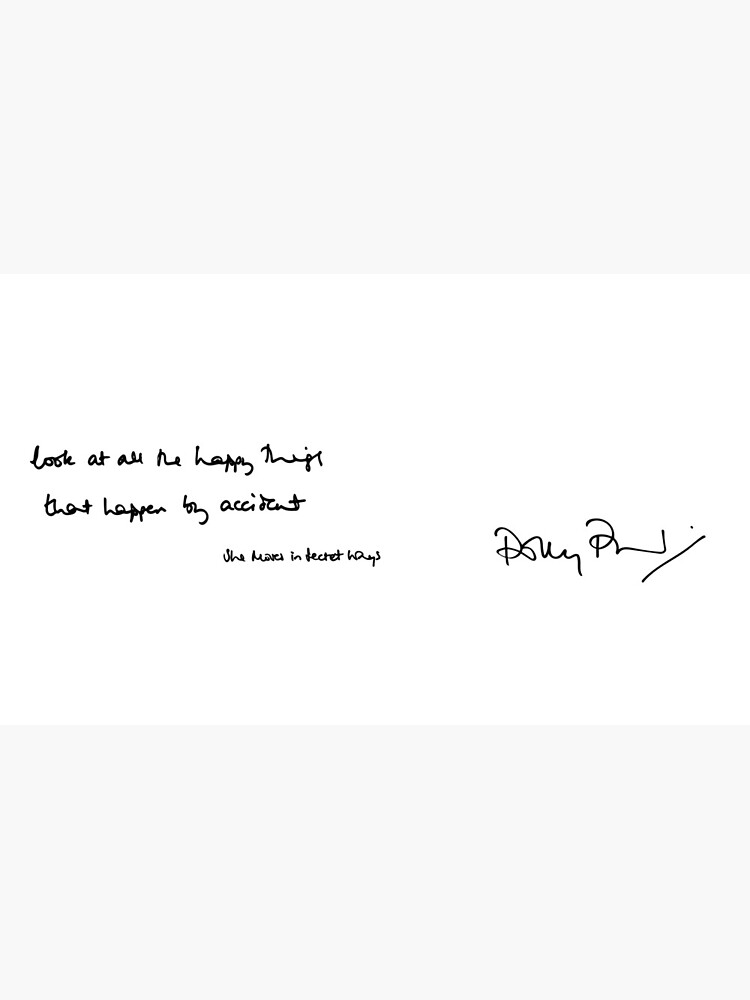 look at all the happy things
that happen by accident
She Moves in Secret Ways
Polly